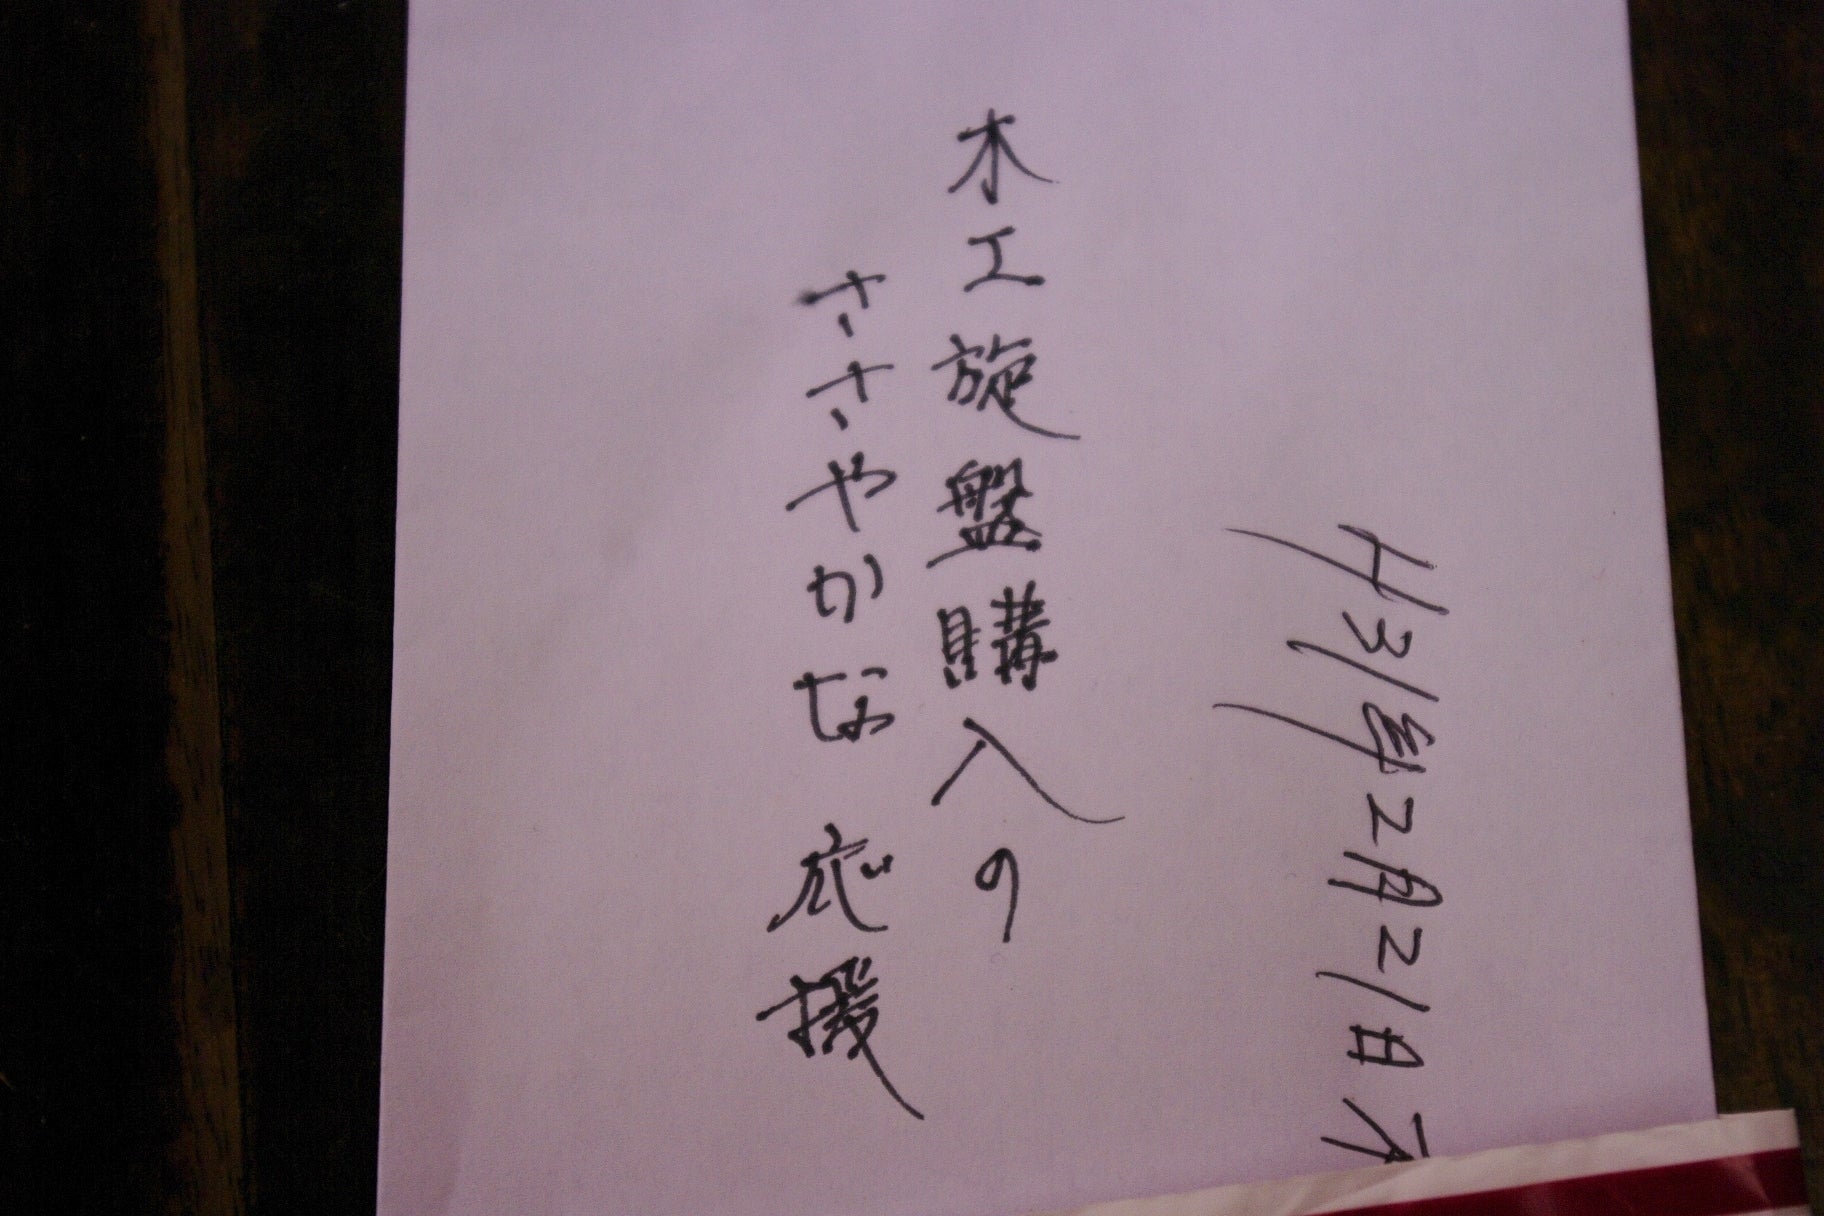 木工旋盤購入の
ささやかな応援
H31年2月21日